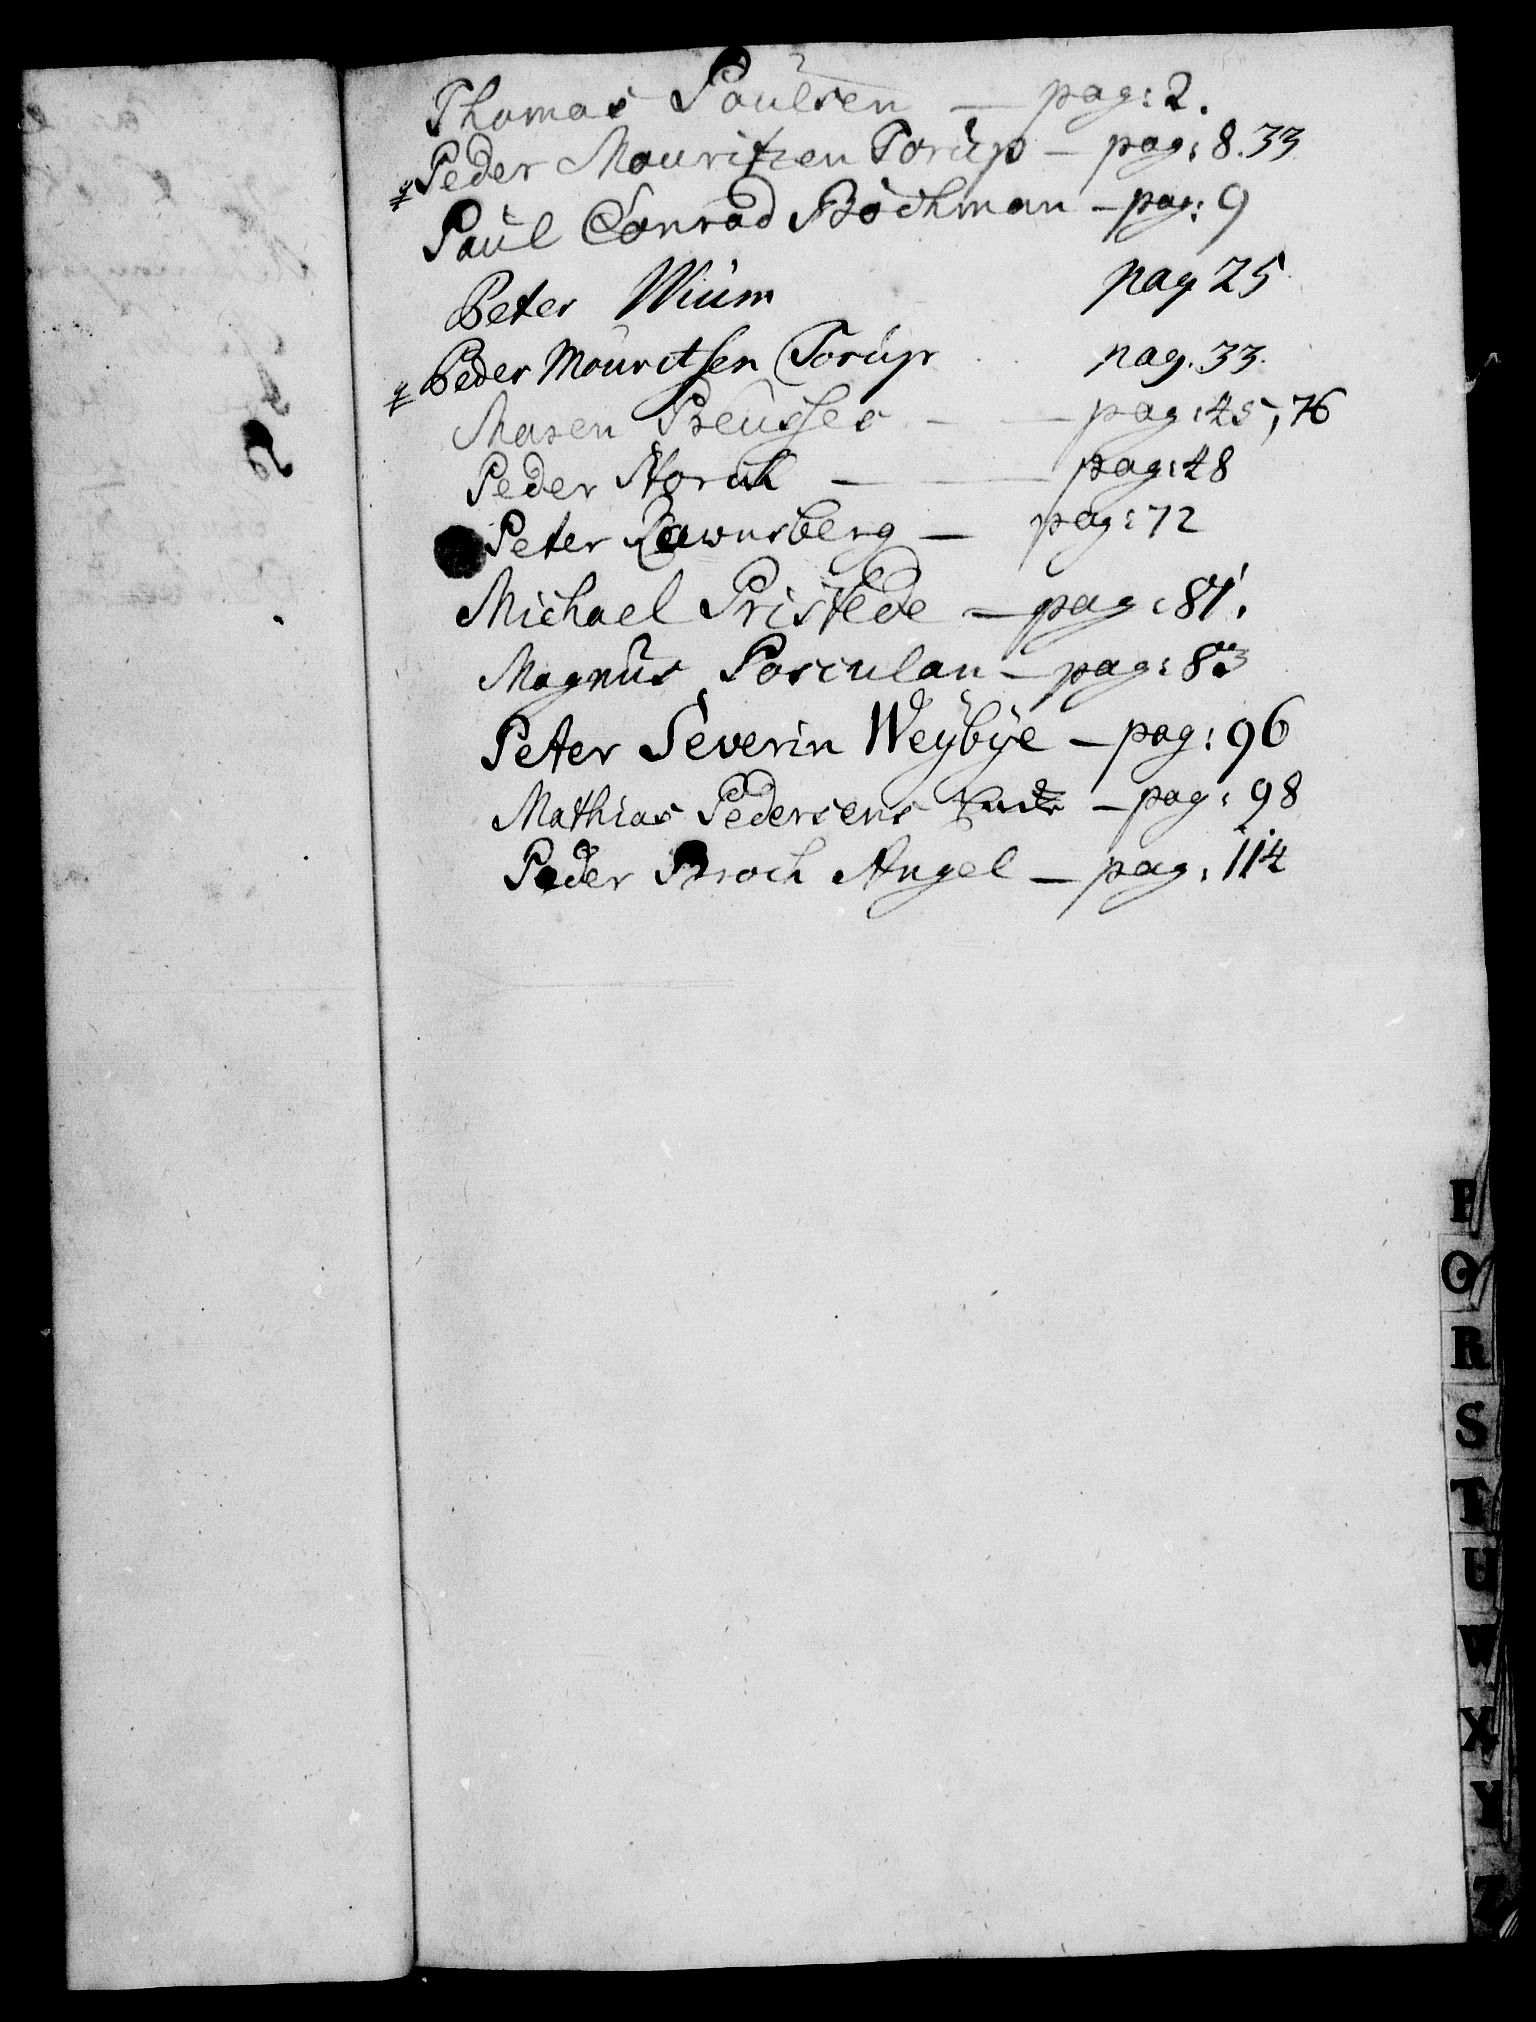 Thomas Poulsen — pag: 2.
Peder Mouritzen Torúp — pag: 8. 33
Paúl Conrad Böckman — pag: 9
Peter Wium pag 25
Peder Mouritsen Torúp pag. 33.
Maren Preússes — pag: 45, 76
Peder Storch — pag: 48
Peter Lewnsberg — pag: 72
Michael Pristede — pag: 81.
Magnús Porculan — pag: 83
Peter Severin Weybÿe — pag: 96
Mathias Pedersens — pag: 98
Peder Broch Angel — pag: 114
P
Q
R
S
T
U
W
X
Y
Z